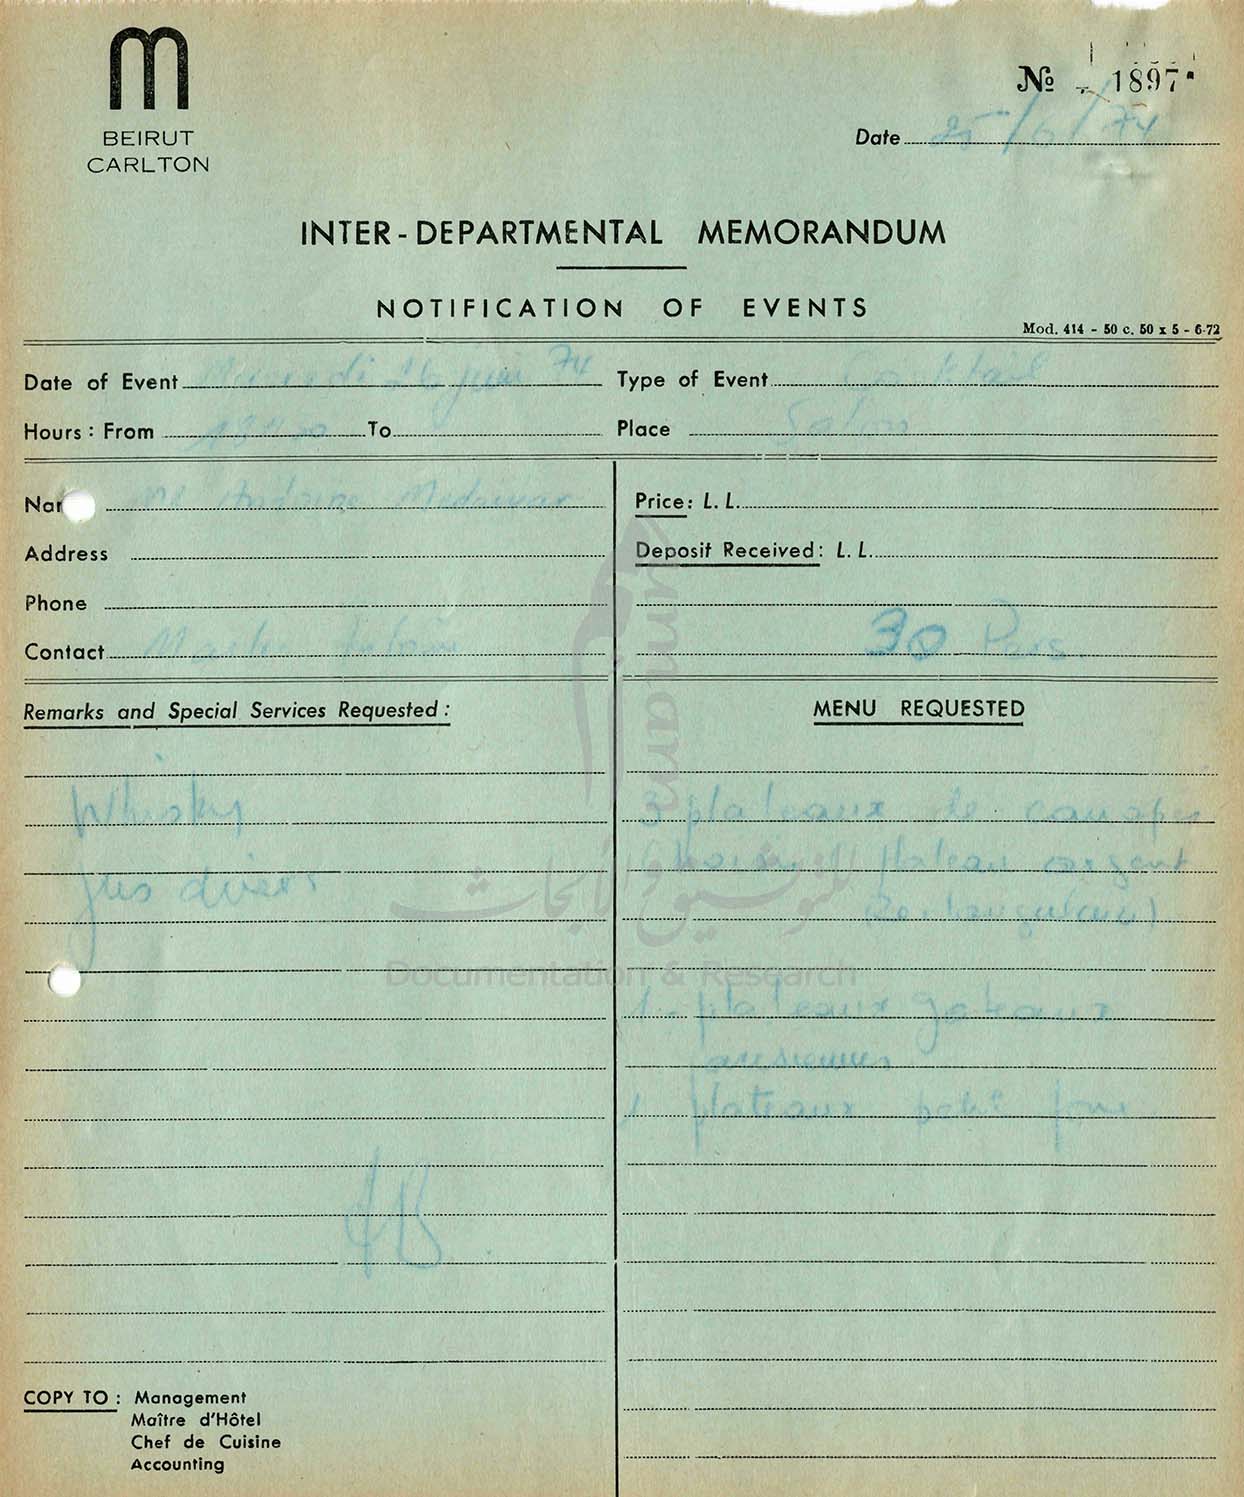 BEIRUT
CARLTON
№ 1897
Date 25/6/74
INTER-DEPARTMENTAL MEMORANDUM
NOTIFICATION OF EVENTS
Mod. 414 - 50 c. 50 x 5 - 6-72
Date of Event Mercredi 26 juin 74
Type of Event Cocktail
Hours: From To
Place Salon
Mr Antoine Medawar
Price: L. L.
Address
Deposit Received: L. L.
Phone
30 Pers.
Contact Antoine
Remarks and Special Services Requested:
MENU REQUESTED
Whisky
3 plateaux de canapés
jus divers
plateau argent
1 plateaux gateaux
1 plateaux petit four
COPY TO: Management
Maître d'Hôtel
Chef de Cuisine
Accounting
ummam
للتوثيق والأبحاث
Documentation & Research